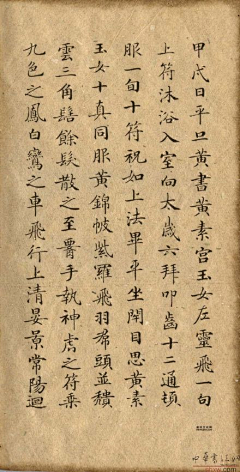 甲戌日平旦黃書黃素宮玉女左靈飛一旬
上符沐浴入室向太歲六拜叩齒十二通頓
服一旬十符祝如上法畢平坐閉目思黃素
玉女十真同服黃錦帔紫羅飛羽帬頭並頹
雲三角髻餘髮散之至𦝫手執神虎之符乗
九色之鳳白鸞之車飛行上清晏景常陽迴